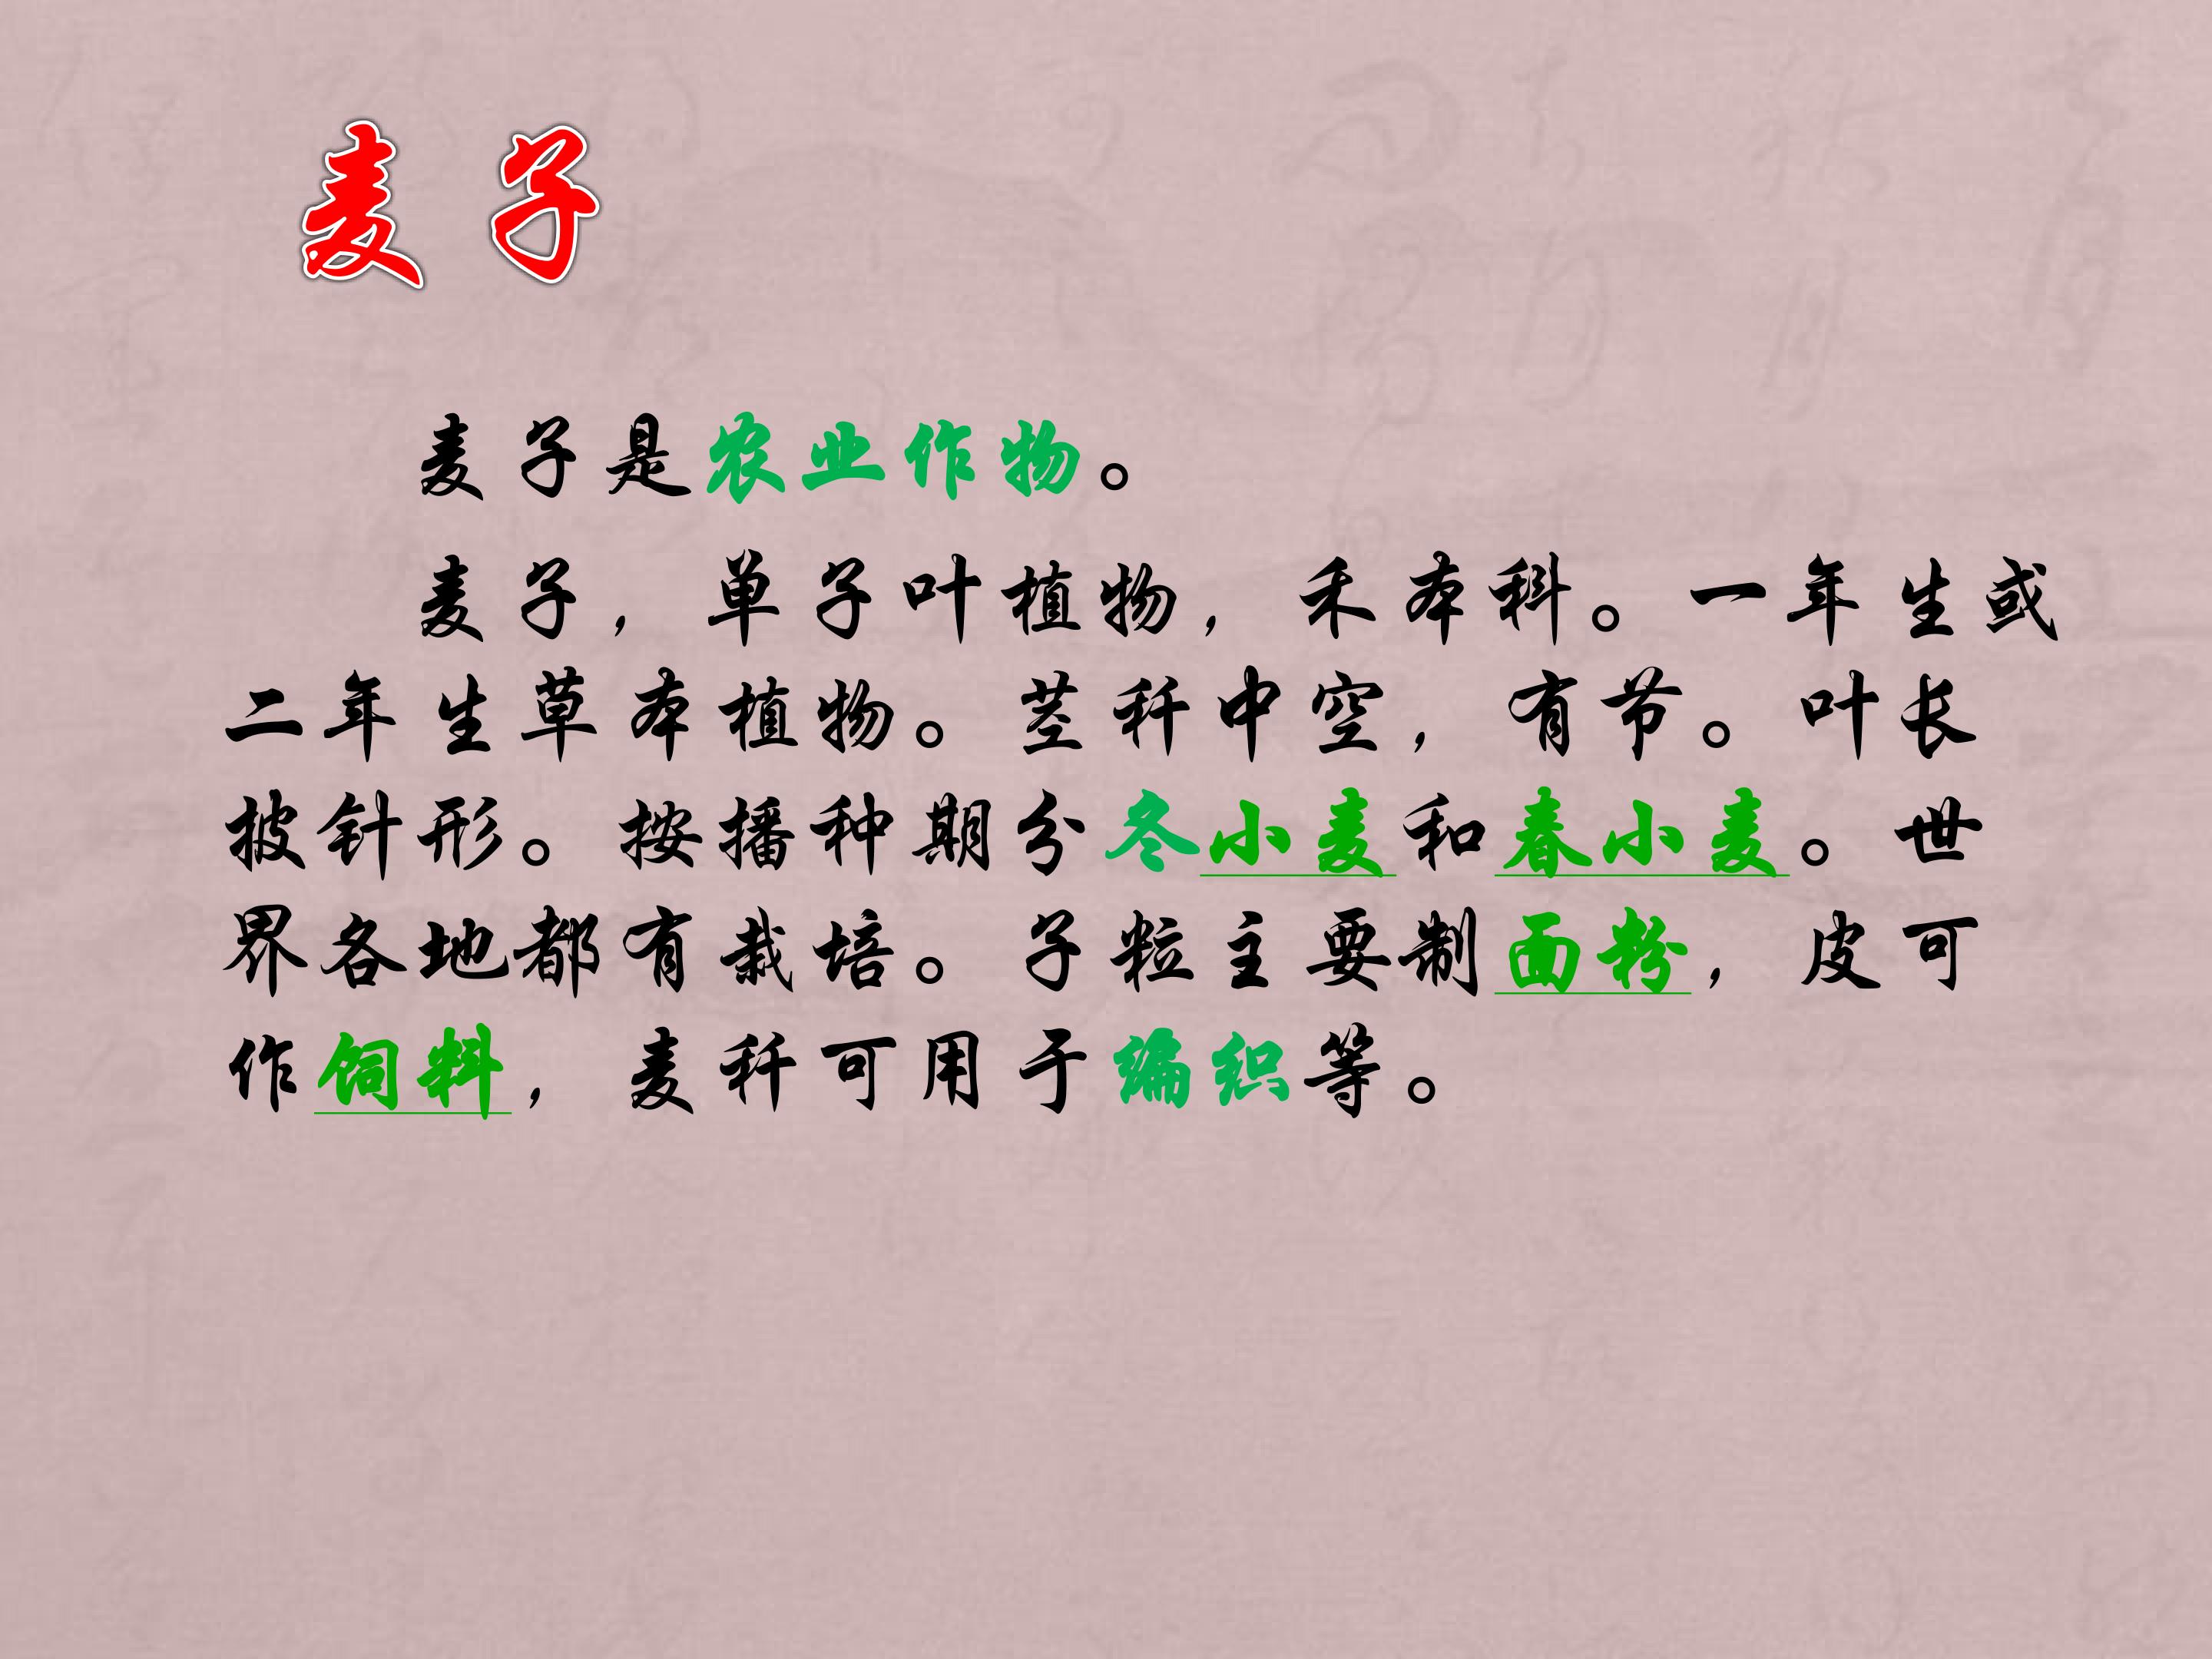 麦子
麦子是农业作物。
麦子，单子叶植物，禾本科。一年生或
二年生草本植物。茎秆中空，有节。叶长
披针形。按播种期分冬小麦和春小麦。世
界各地都有栽培。子粒主要制面粉，皮可
作饲料，麦秆可用于编织等。